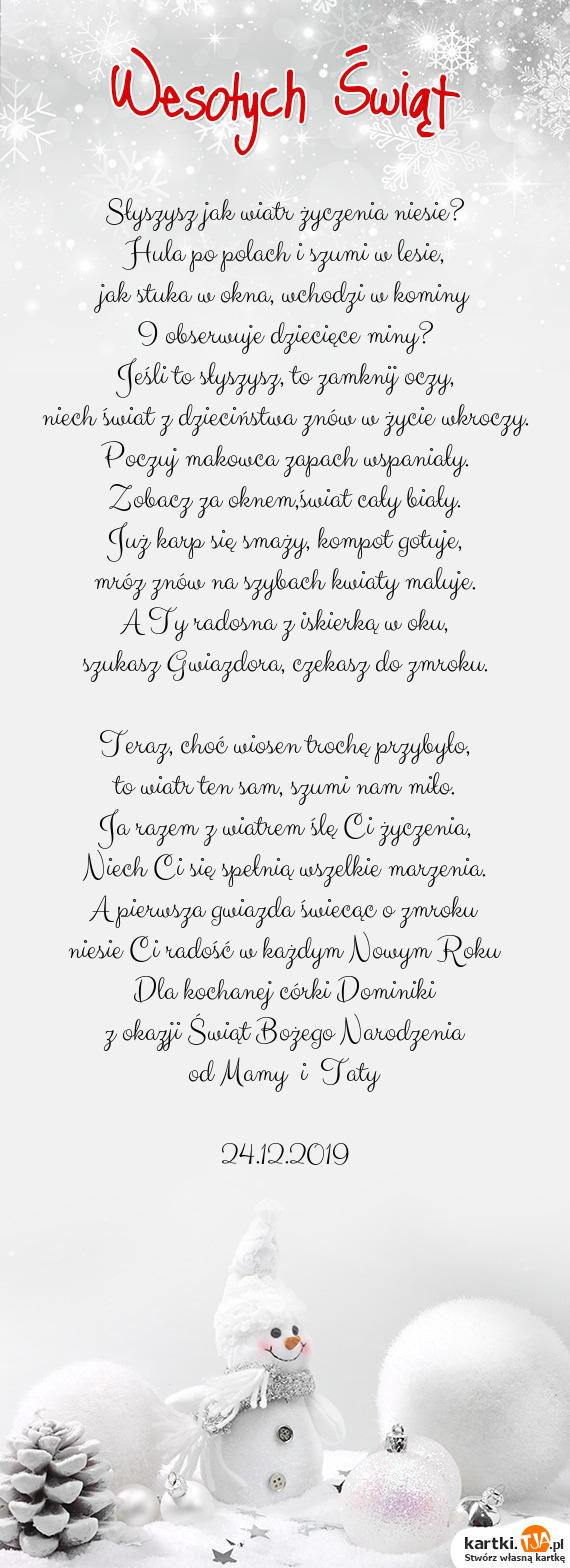 Wesołych Świąt
Słyszysz jak wiatr życzenia niesie?
Hula po polach i szumi w lesie,
jak stuka w okna, wchodzi w kominy
I obserwuje dziecięce miny?
Jeśli to słyszysz, to zamknij oczy,
niech świat z dzieciństwa znów w życie wkroczy.
Poczuj makowca zapach wspaniały.
Zobacz za oknem,świat cały biały.
Już karp się smaży, kompot gotuje,
mróz znów na szybach kwiaty maluje.
A Ty radosna z iskierką w oku,
szukasz Gwiazdora, czekasz do zmroku.
Teraz, choć wiosen trochę przybyło,
to wiatr ten sam, szumi nam miło.
Ja razem z wiatrem ślę Ci życzenia,
Niech Ci się spełnią wszelkie marzenia.
A pierwsza gwiazda świecąc o zmroku
niesie Ci radość w każdym Nowym Roku
Dla kochanej córki Dominiki
z okazji Świąt Bożego Narodzenia
od Mamy i Taty
24.12.2019
kartki.TJA.pl
Stwórz własną kartkę